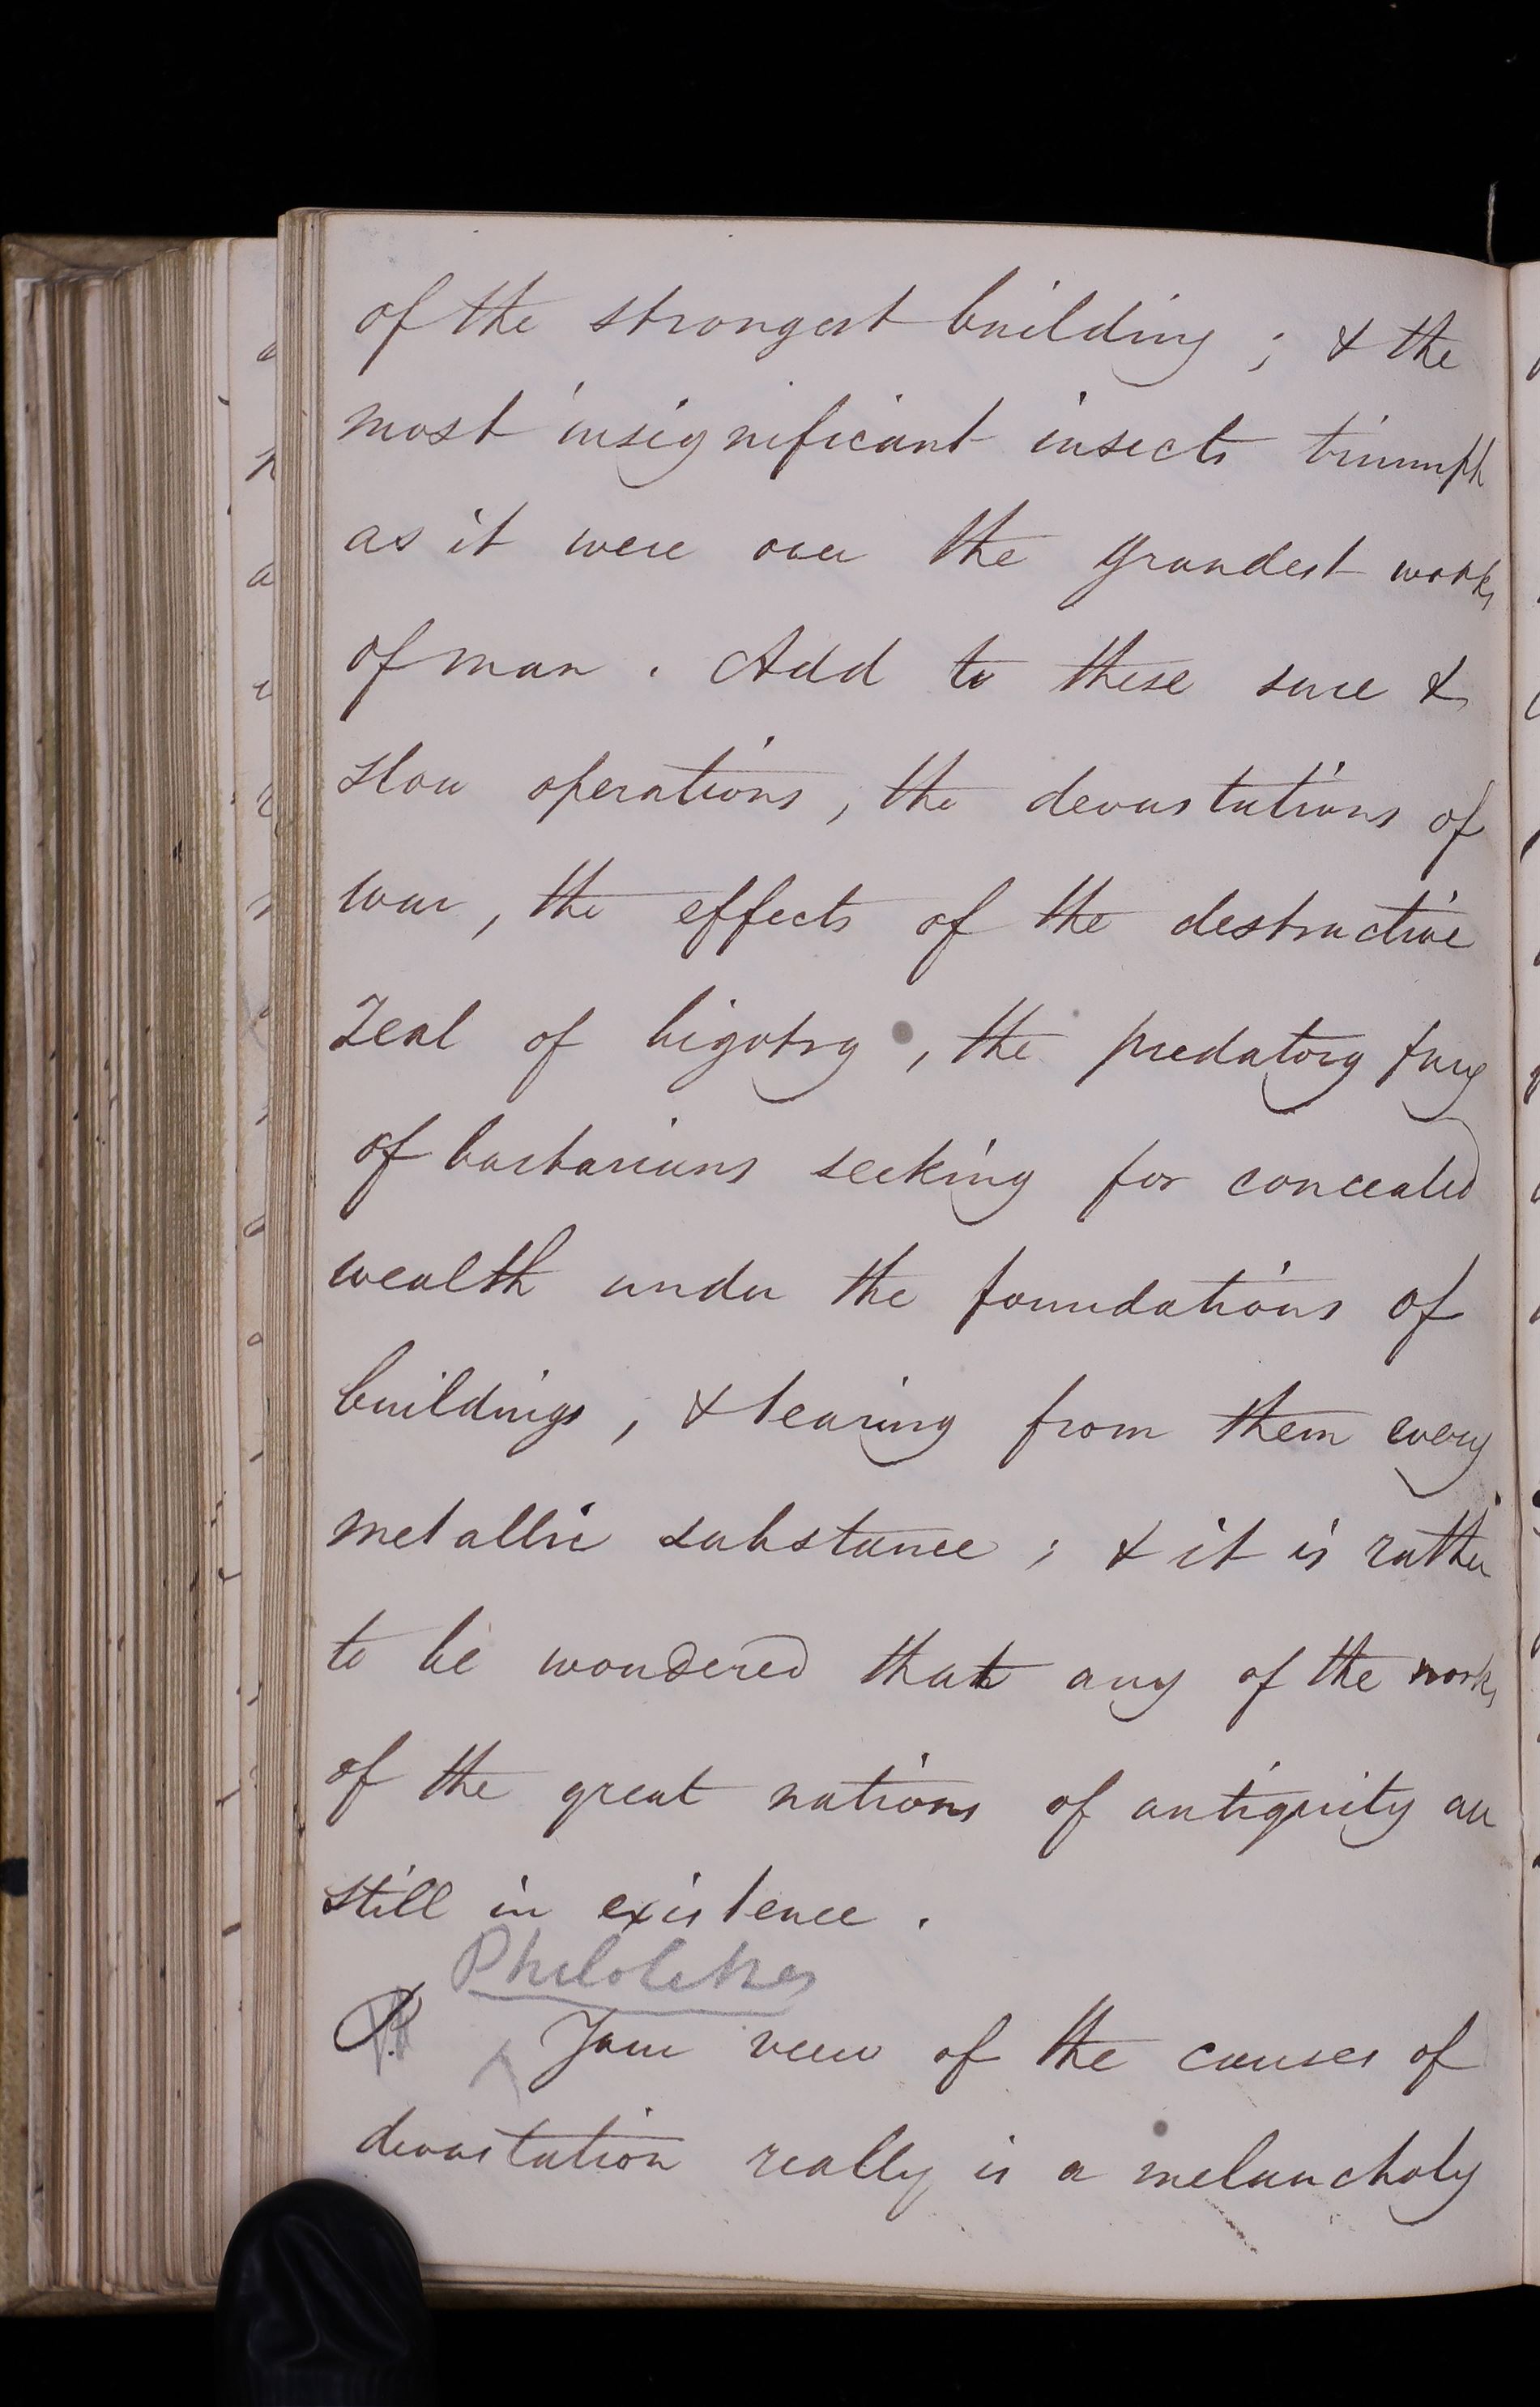 of the strongest building ; & the
most insignificant insects triumph
as it were over the grandest works
of man . Add to these sure &
slow operations , the devastations of
war , the effects of the destructive
zeal of bigotry , the predatory fury
of barbarians seeking for concealed
wealth under the foundations of
buildings , & tearing from them every
metallic substance ; & it is rather
to be wondered that any of the works
of the great nations of antiquity are
still in existence .
Philalethes
P. Your view of the causes of
devastation really is a melancholy